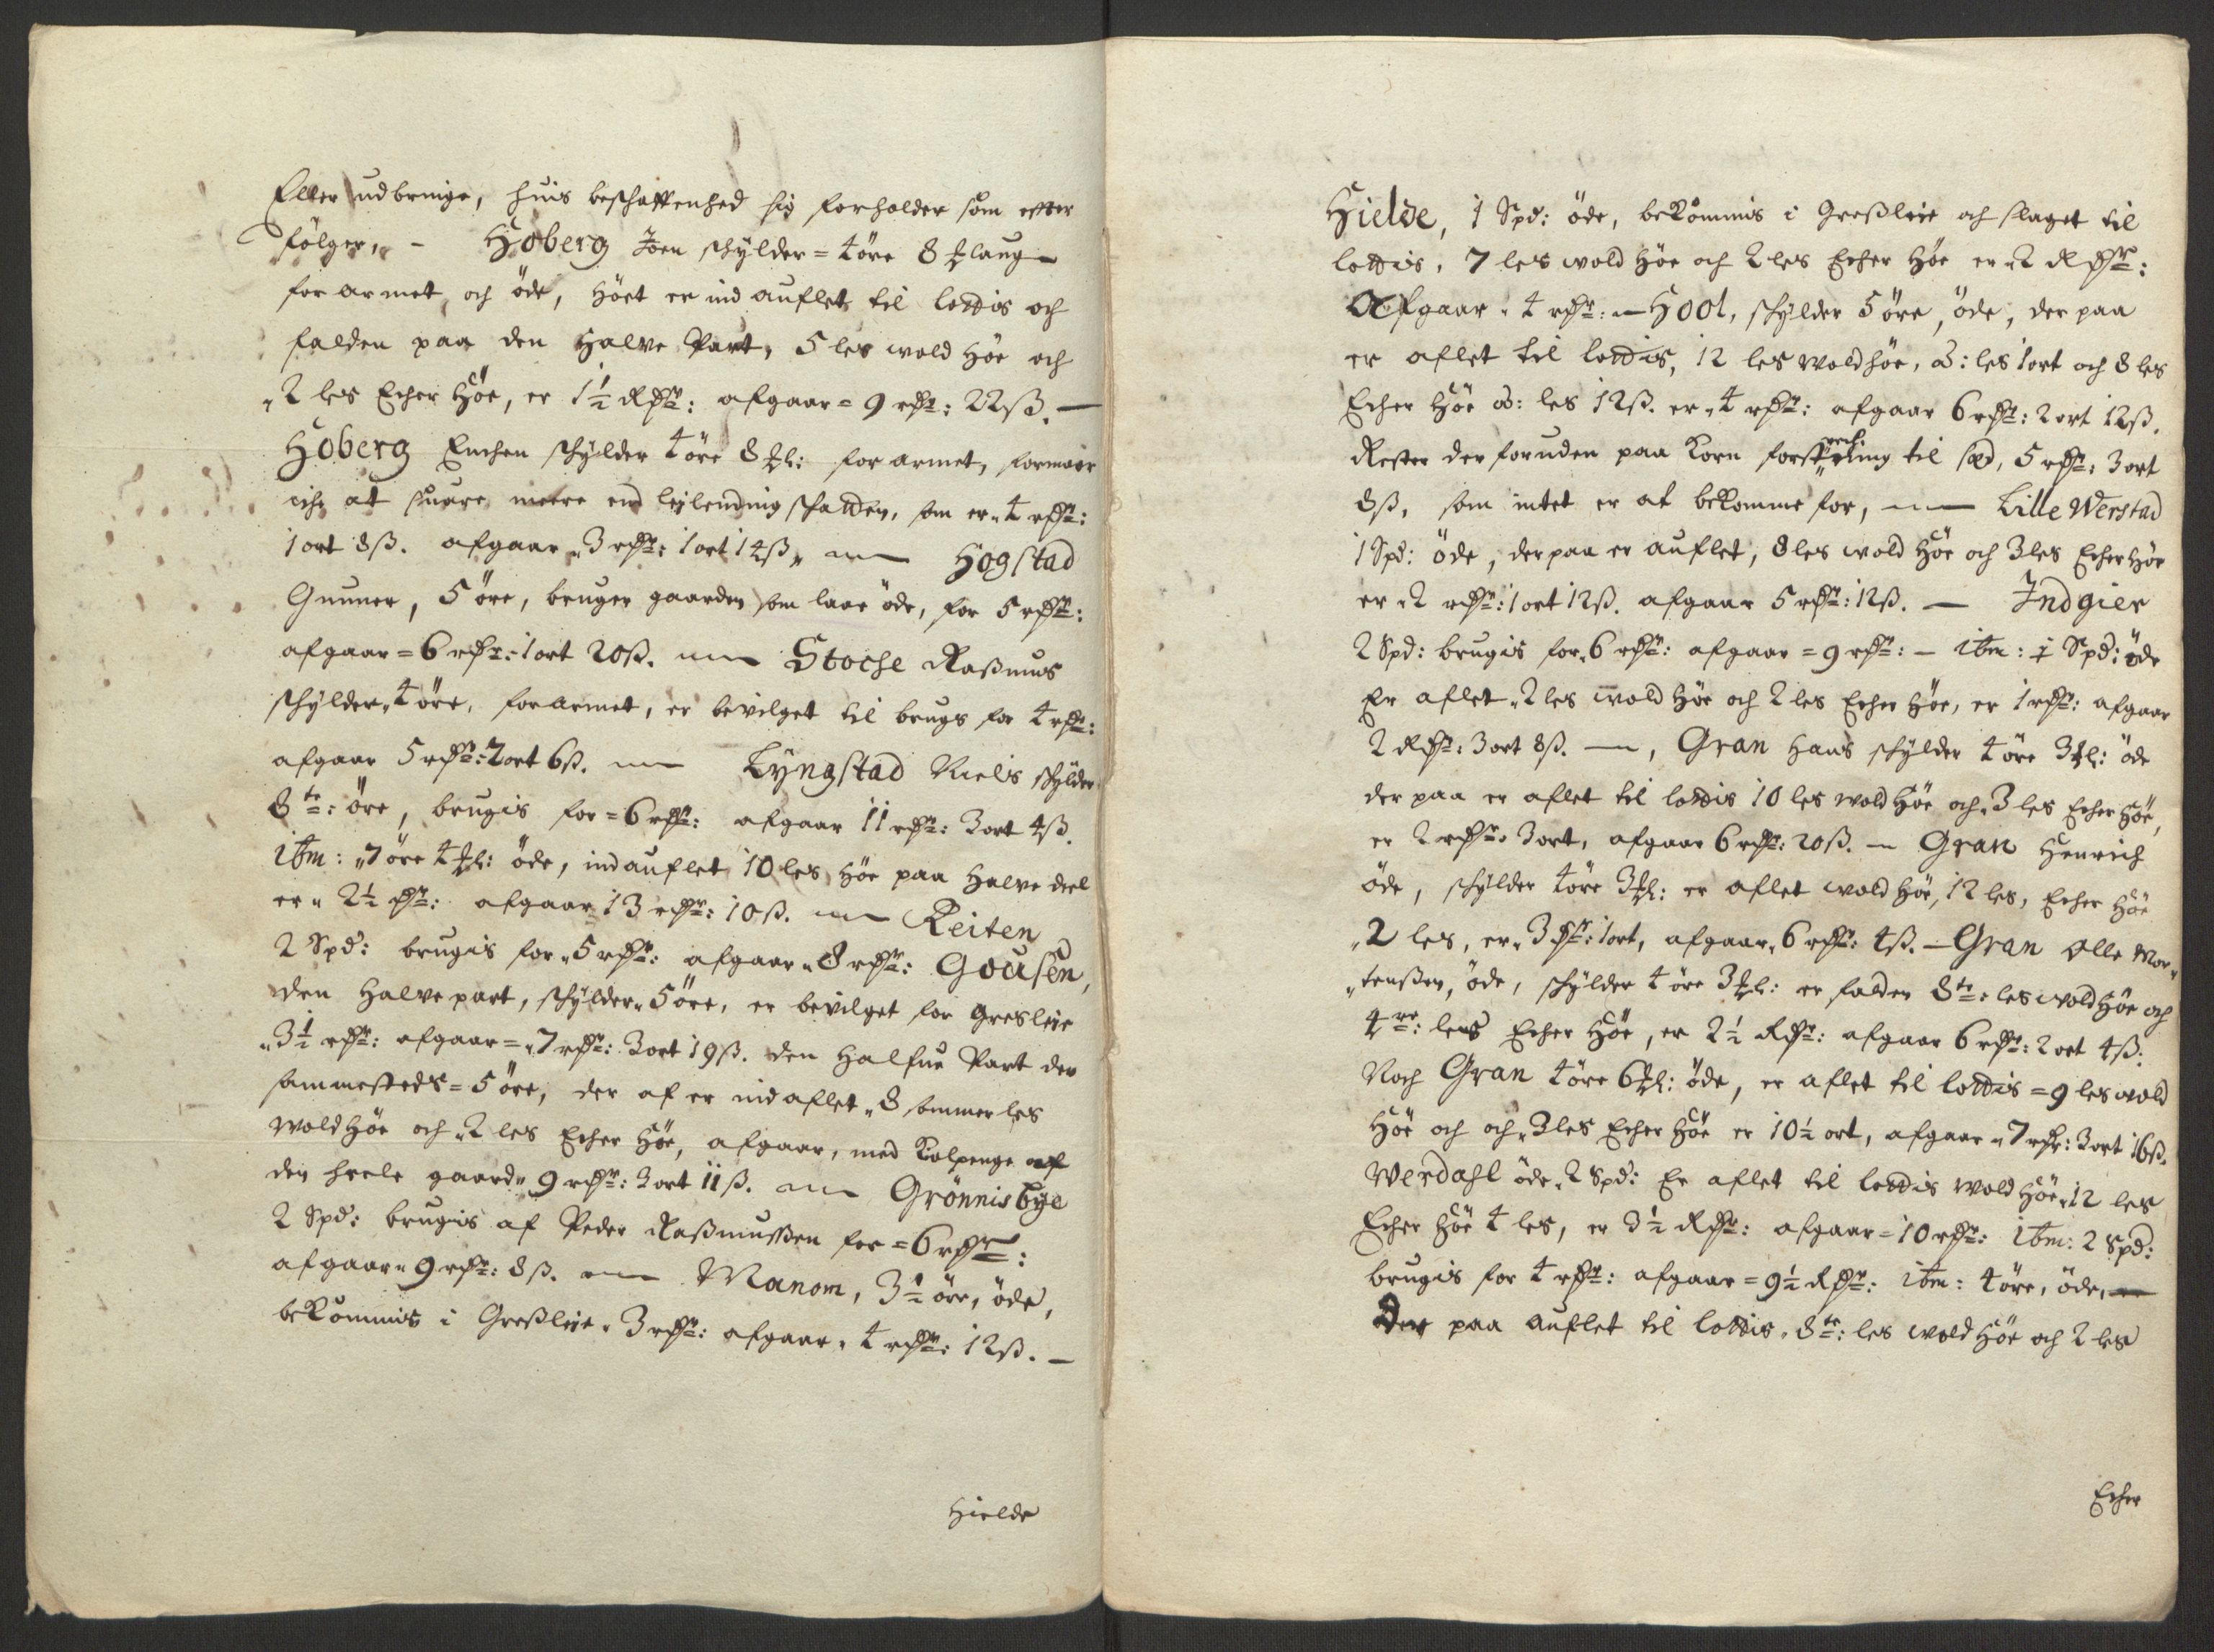 Eller udbringe, huis beschaffenhed sig forholder som effter
følger, - Hoberg Joen schylder = 4 öre 8 [℔] laug
forarmet och öde, höet er ind auflet til lottis och
falden paa den Halve Part, 5 les wold Höe och
„2 les Echer Höe, er 1½ Rdr: afgaar = 9 rdr: 22 ß. —
Hoberg Enchen schylder 4 öre 8 [℔]l: forarmet, formaar
iche at suare meere end leilending schatten, som er „ 4 rdr:
1 ort 8 ß. afgaar „ 3 rdr: 1 ort 14 ß „ — Hogstad
Gunner, 5 öre, bruger gaarden som laae öde, for 5 rdr:
afgaar = 6 rdr: 1 ort 20 ß. — Stoche Raßmus
schylder „ 4 öre, forarmet, er bevilget til brugs for 4 rdr:
afgaar 5 rdr: 2 ort 6 ß. — Lyngstad Niels schylder
8te: öre, brugis for = 6 rdr: afgaar 11 rdr: 3 ort 4 ß.
itm: „ 7 öre 4 [℔]l: öde, ind auflet 10 les Höe paa Halve deel
er „ 2½ dr: afgaar 13 rdr: 10 ß. — Reiten
2 Spd: brugis for „ 5 rdr: afgaar „ 8 rdr: Gousen,
den Halve part, schylder „ 5 öre, er bevilget for gresleie
„ 3½ rdr: afgaar = „ 7 rdr: 3 ort 19 ß. den Halfue Part der
sammesteds = 5 öre, der af er ind aflet „ 8 sommer les
Wold Höe och „ 2 les Echer Höe, afgaar, med Kolpenge af
den heele gaard „ 9 rdr: 3 ort 11 ß. — Grönnisbye
2 Spd: brugis af Peder Raßmussen for = 6 rdr:
afgaar „ 9 rdr: 8 ß. — Manom, 3½ öre, öde,
bekommis i Greßleie „ 3 rdr: afgaar „ 4 rdr: 12 ß. —
Hielde
Hielde, 1 Spd: öde, bekommis i Greßleie och slaget til
lottis, 7 les wold Höe och 2 les Echer Höe er „ 2 Rdr:
Afgaar „ 4 rdr: — Hool, schylder 5 öre, öde, der paa
er aflet til lottis, 12 les Wold höe, á: les 1 ort och 8 les
Echer Höe á: les 12 ß. er „ 4 rdr: afgaar 6 rdr: 2 ort 12 ß.
Rester der foruden paa Korn forstrechning til sæd, 5 rdr: 3 ort
8 ß, som intet er at bekomme for, — Lille Werstad
1 Spd: öde, der paa er auflet, 8 les wold Höe och 3 les Echer Höe
er „ 2 rdr: 1 ort 12 ß. afgaar 5 rdr: 12 ß. — Indgier
2 Spd: brugis for „ 6 rdr: afgaar = 9 rdr: — itm: 1 Spd: öde
Er aflet „ 2 les wold Höe och 2 les Echer Höe, er 1 rdr: afgaar
2 Rdr: 3 ort 8 ß. —, Gran Hans schylder 4 öre 3 [℔]l: öde
der paa er aflet til lottis 10 les wold Höe och „ 3 les Echer Höe,
er 2 rdr: 3 ort, afgaar 6 rdr: 20 ß. — Gran Henrich
öde, schylder 4 öre 3 [℔]l: er aflet wold Höe, 12 les, Echer Höe
„ 2 les, er „ 3 dr: 1 ort, afgaar „ 6 rdr: 4 ß. — Gran Olle Mor„
„tenßen, öde, schylder 4 öre 3 [℔]l: er falden 8te: les wold Höe och
4re: les Echer Höe, er 2½ Rdr: afgaar 6 rdr: 2 ort 4 ß:
Noch Gran 4 öre 6 [℔]l: öde, er aflet til lottis = 9 les wold
Höe och och „ 3 les Echer Höe er 10½ ort, afgaar „ 7 rdr: 3 ort 16 ß.
Werdahl öde „ 2 Spd: Er aflet til lottis wold Höe „ 12 les
Echer Höe 4 les, er 3½ Rdr: afgaar = 10 rdr: itm: 2 Spd:
brugis for 4 rdr: afgaar = 9½ Rdr: itm: 4 öre, öde, —
Der paa auflet til lottis „ 8te: les wold Höe och 2 les
Echer